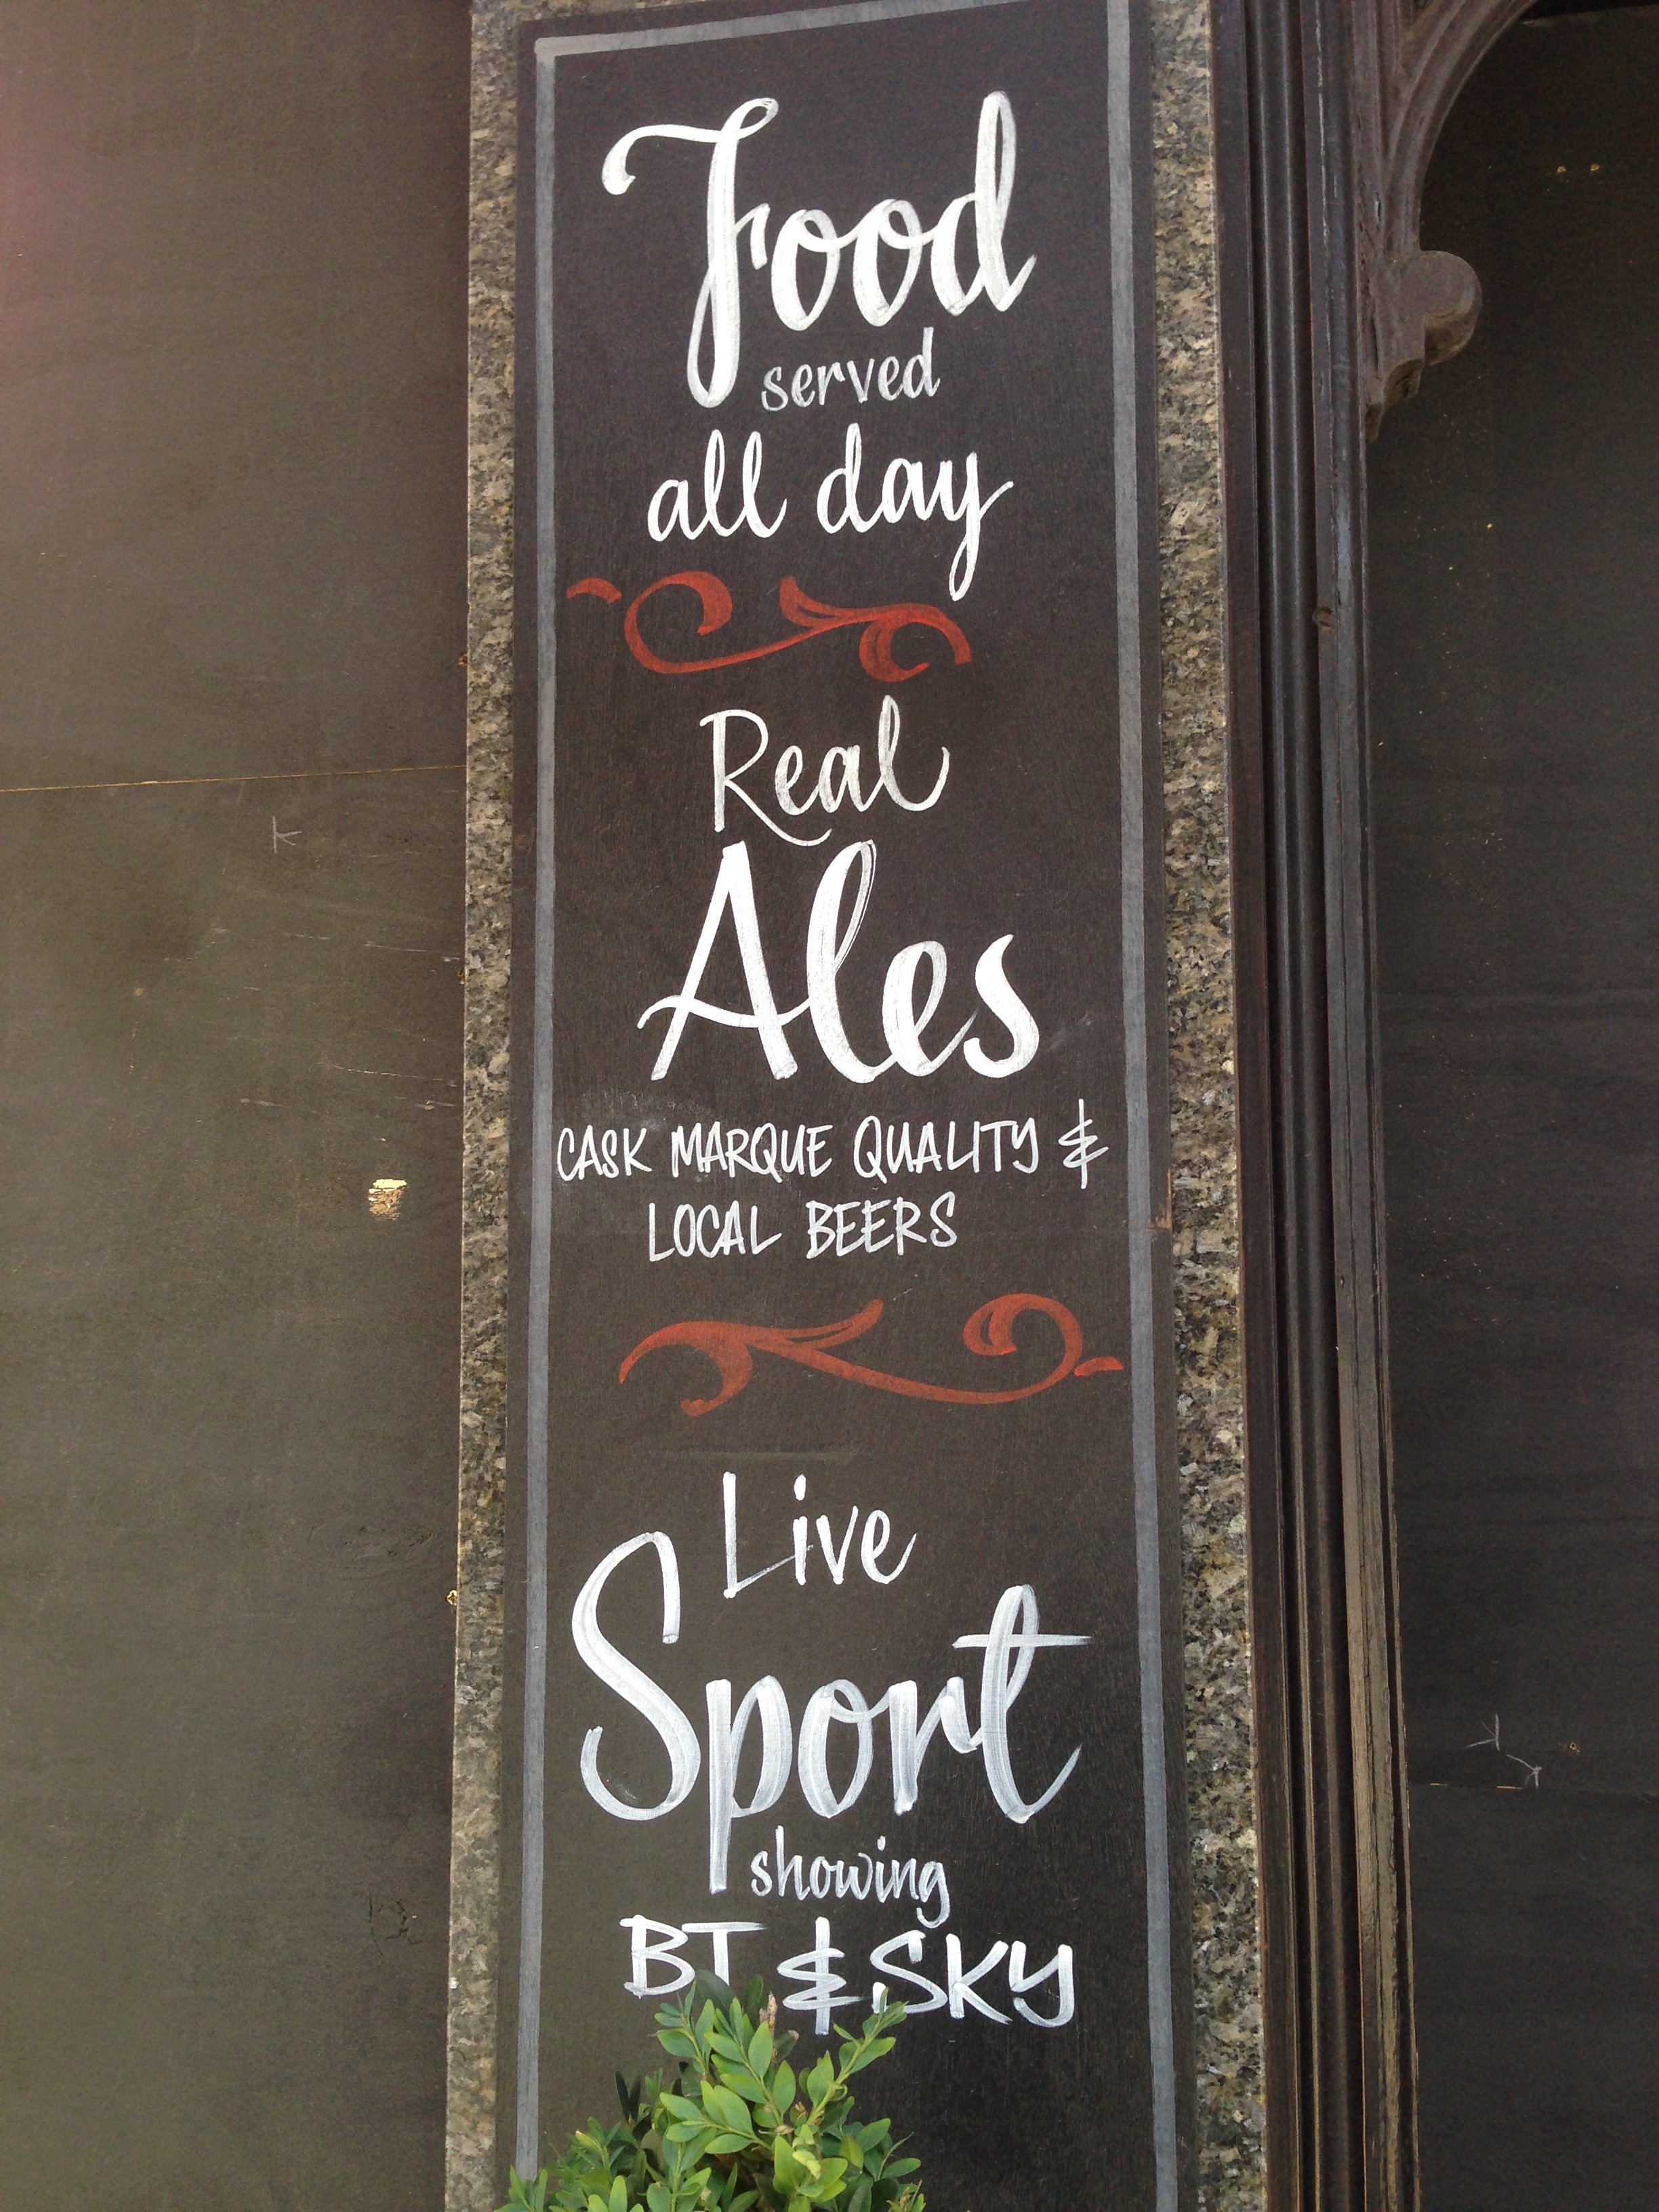 Food
served
all day
Real
Ales
CASK MARQUE QUALITY &
LOCAL BEERS
Live
Sport
showing
BT & SKY